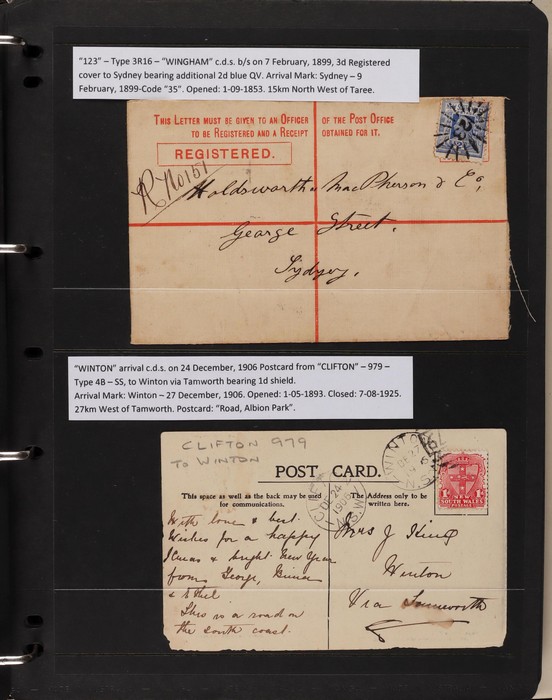 "123" – Type 3R16 – "WINGHAM" c.d.s. b/s on 7 February, 1899, 3d Registered
cover to Sydney bearing additional 2d blue QV. Arrival Mark: Sydney – 9
February, 1899-Code "35". Opened: 1-09-1853. 15km North West of Taree.
THIS LETTER MUST BE GIVEN TO AN OFFICER OF THE POST OFFICE
TO BE REGISTERED AND A RECEIPT OBTAINED FOR IT.
REGISTERED.
R No 151
Holdsworth MacPherson & Co,
George Street,
Sydney.
"WINTON" arrival c.d.s. on 24 December, 1906 Postcard from "CLIFTON" – 979 –
Type 4B – SS, to Winton via Tamworth bearing 1d shield.
Arrival Mark: Winton – 27 December, 1906. Opened: 1-05-1893. Closed: 7-08-1925.
27km West of Tamworth. Postcard: "Road, Albion Park".
CLIFTON 979
TO WINTON
POST CARD.
This space as well as the back may be used
for communications.
The Address only to be
written here.
WINTON
DE 27
N.S.W
DE 24
1906
N.S.W
NEW
SOUTH WALES
With love & best
Wishes for a happy
Xmas & bright New Year
from George,
& Ethel
This is a road on
the south coast.
Mrs J King
Winton
Via Tamworth